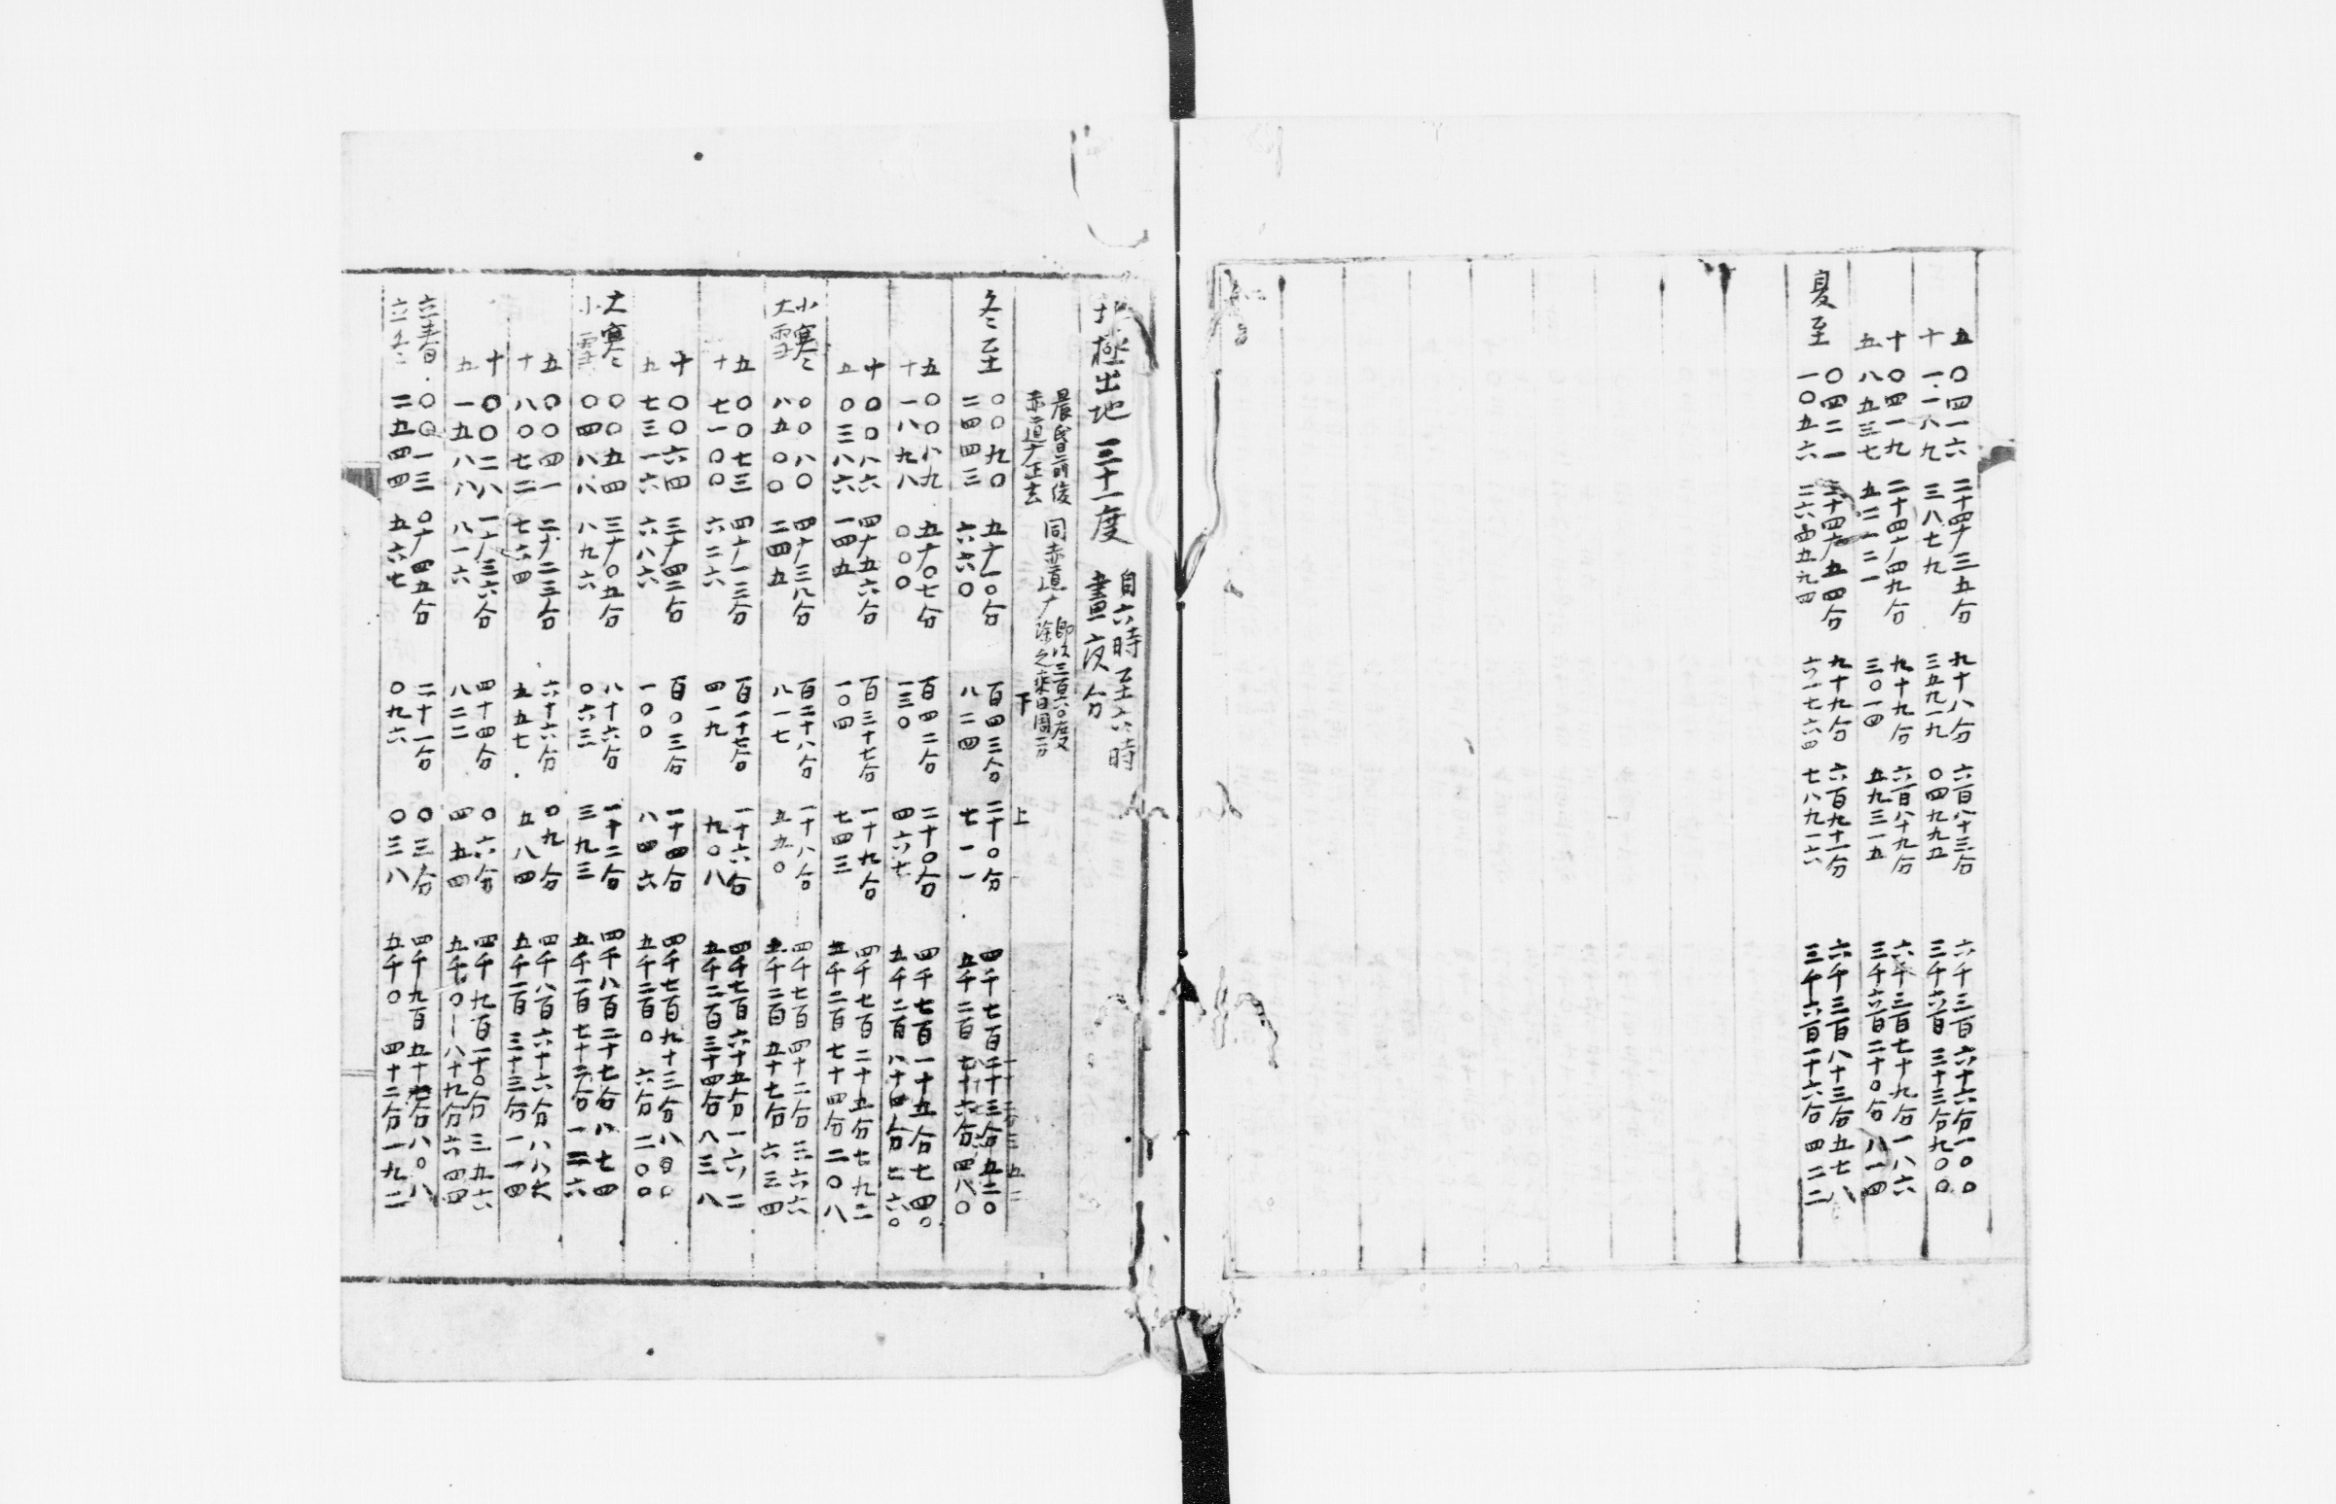 五 〇四一六 二十四十三五分 九十八分 六百八十三分 六千三百六十六分一〇〇
十 一一八九 三八七九 三五九一九 〇四九九五 三千六百三十三分九〇〇
十 〇四一九 二十四十四九分 九十九分 六百八十九分 六千三百七十九分一八六
五 八五三七 五二一二一 三〇一四 五九三一五 三千六百二十〇分八一四
夏至 〇四二一 二十四十五四分 九十九分 六百九十一分 六千三百八十三分五七八
一〇五六 六一七六四 七八九一六 三千六百一十六分四二二
北極出地三十一度 自六時至六時
晝夜分
晨昏前後 同赤道十 即以三百六〇度
赤道十正去 除之乘日周一万
下 上
冬至 〇〇九〇 五十一〇分 百四三分 二十〇分
二四四三 六六〇 八二四 七一一 五千二百七十六分四八〇
五 〇〇八九 五十〇七分 百四二分 二十〇分 四千七百一十五分七四〇
十 一八九八 〇〇〇 一三〇 四六七 五千二百八十四分二六〇
十 〇〇八六 四十九六分 百三十七分 一十九分 四千七百二十五分七九二
五 〇三八六 一四五 一〇四 七四三 五千二百七十四分二〇八
小寒 〇〇八〇 四十三八分 百二十八分 一十八分 四千七百四十二分三六六
大雪 八五〇〇 二四五 八一七 五五〇 五千二百五十七分六三四
五 〇〇七三 四十一三分 百一十七分 一十六分 四千七百六十五分一六二
十 七一〇〇 六二六 四一九 九〇八 五千二百三十四分八三八
十 〇〇六四 三十四二分 百〇三分 一十四分 四千七百九十三分八〇〇
五 七三一六 六八六 一〇〇 八四六 五千二百〇六分二〇〇
大寒 〇〇五四 三十〇五分 八十六分 一十二分 四千八百二十七分八七四
小雪 〇四八八 八九六 〇六三 三九三 五千一百七十二分一二六
五 〇〇四一 二十二三分 六十六分 〇九分 四千八百六十六分八八六
十 八〇七二 七六四 五五七 五八四 五千一百三十三分一一四
十 〇〇二八 一十三六分 四十四分 〇六分 四千九百一十〇分三五六
五 一五八八 八一六 八二二 四五四 五千〇八十九分六四四
立春 〇〇一三 〇十四五分 二十一分 〇三分 四千九百五十七分八〇八
立冬 二五四四 五六七 〇九六 〇三八 五千〇四十二分一九二